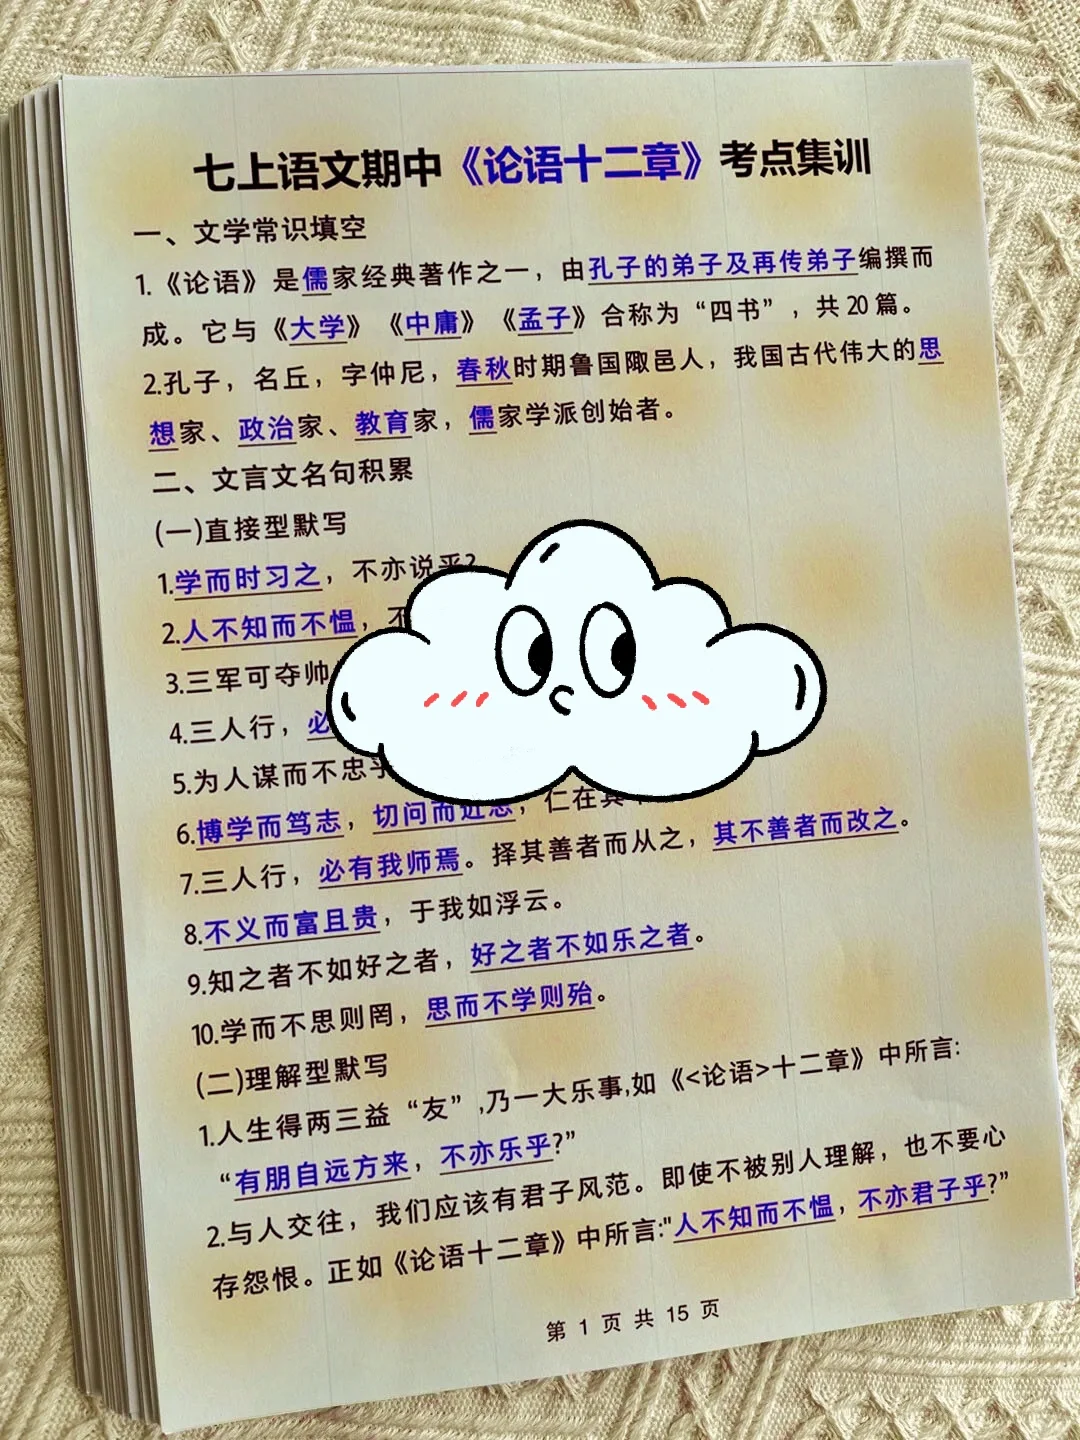 七上语文期中《论语十二章》考点集训
一、文学常识填空
1.《论语》是儒家经典著作之一，由孔子的弟子及再传弟子编撰而
成。它与《大学》《中庸》《孟子》合称为“四书”，共20篇。
2.孔子，名丘，字仲尼，春秋时期鲁国陬邑人，我国古代伟大的思
想家、政治家、教育家，儒家学派创始者。
二、文言文名句积累
(一)直接型默写
1.学而时习之，不亦说乎?
2.人不知而不愠，不
3.三军可夺帅
4.三人行，必
5.为人谋而不忠乎
6.博学而笃志，切问而近思，仁在其
7.三人行，必有我师焉。择其善者而从之，其不善者而改之。
8.不义而富且贵，于我如浮云。
9.知之者不如好之者，好之者不如乐之者。
10.学而不思则罔，思而不学则殆。
(二)理解型默写
1.人生得两三益“友”,乃一大乐事,如《<论语>十二章》中所言:
“有朋自远方来，不亦乐乎?”
2.与人交往，我们应该有君子风范。即使不被别人理解，也不要心
存怨恨。正如《论语十二章》中所言:"人不知而不愠，不亦君子乎?”
第 1 页 共 15 页